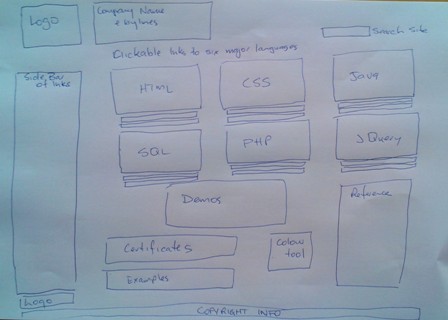 Logo
Company Name
& bylines
Search Site
Clickable links to six major languages
Side Bar
of links
HTML
CSS
Java
SQL
PHP
JQuery
Demos
Reference
Certificates
Colour
tool
Examples
Logo
COPYRIGHT INFO